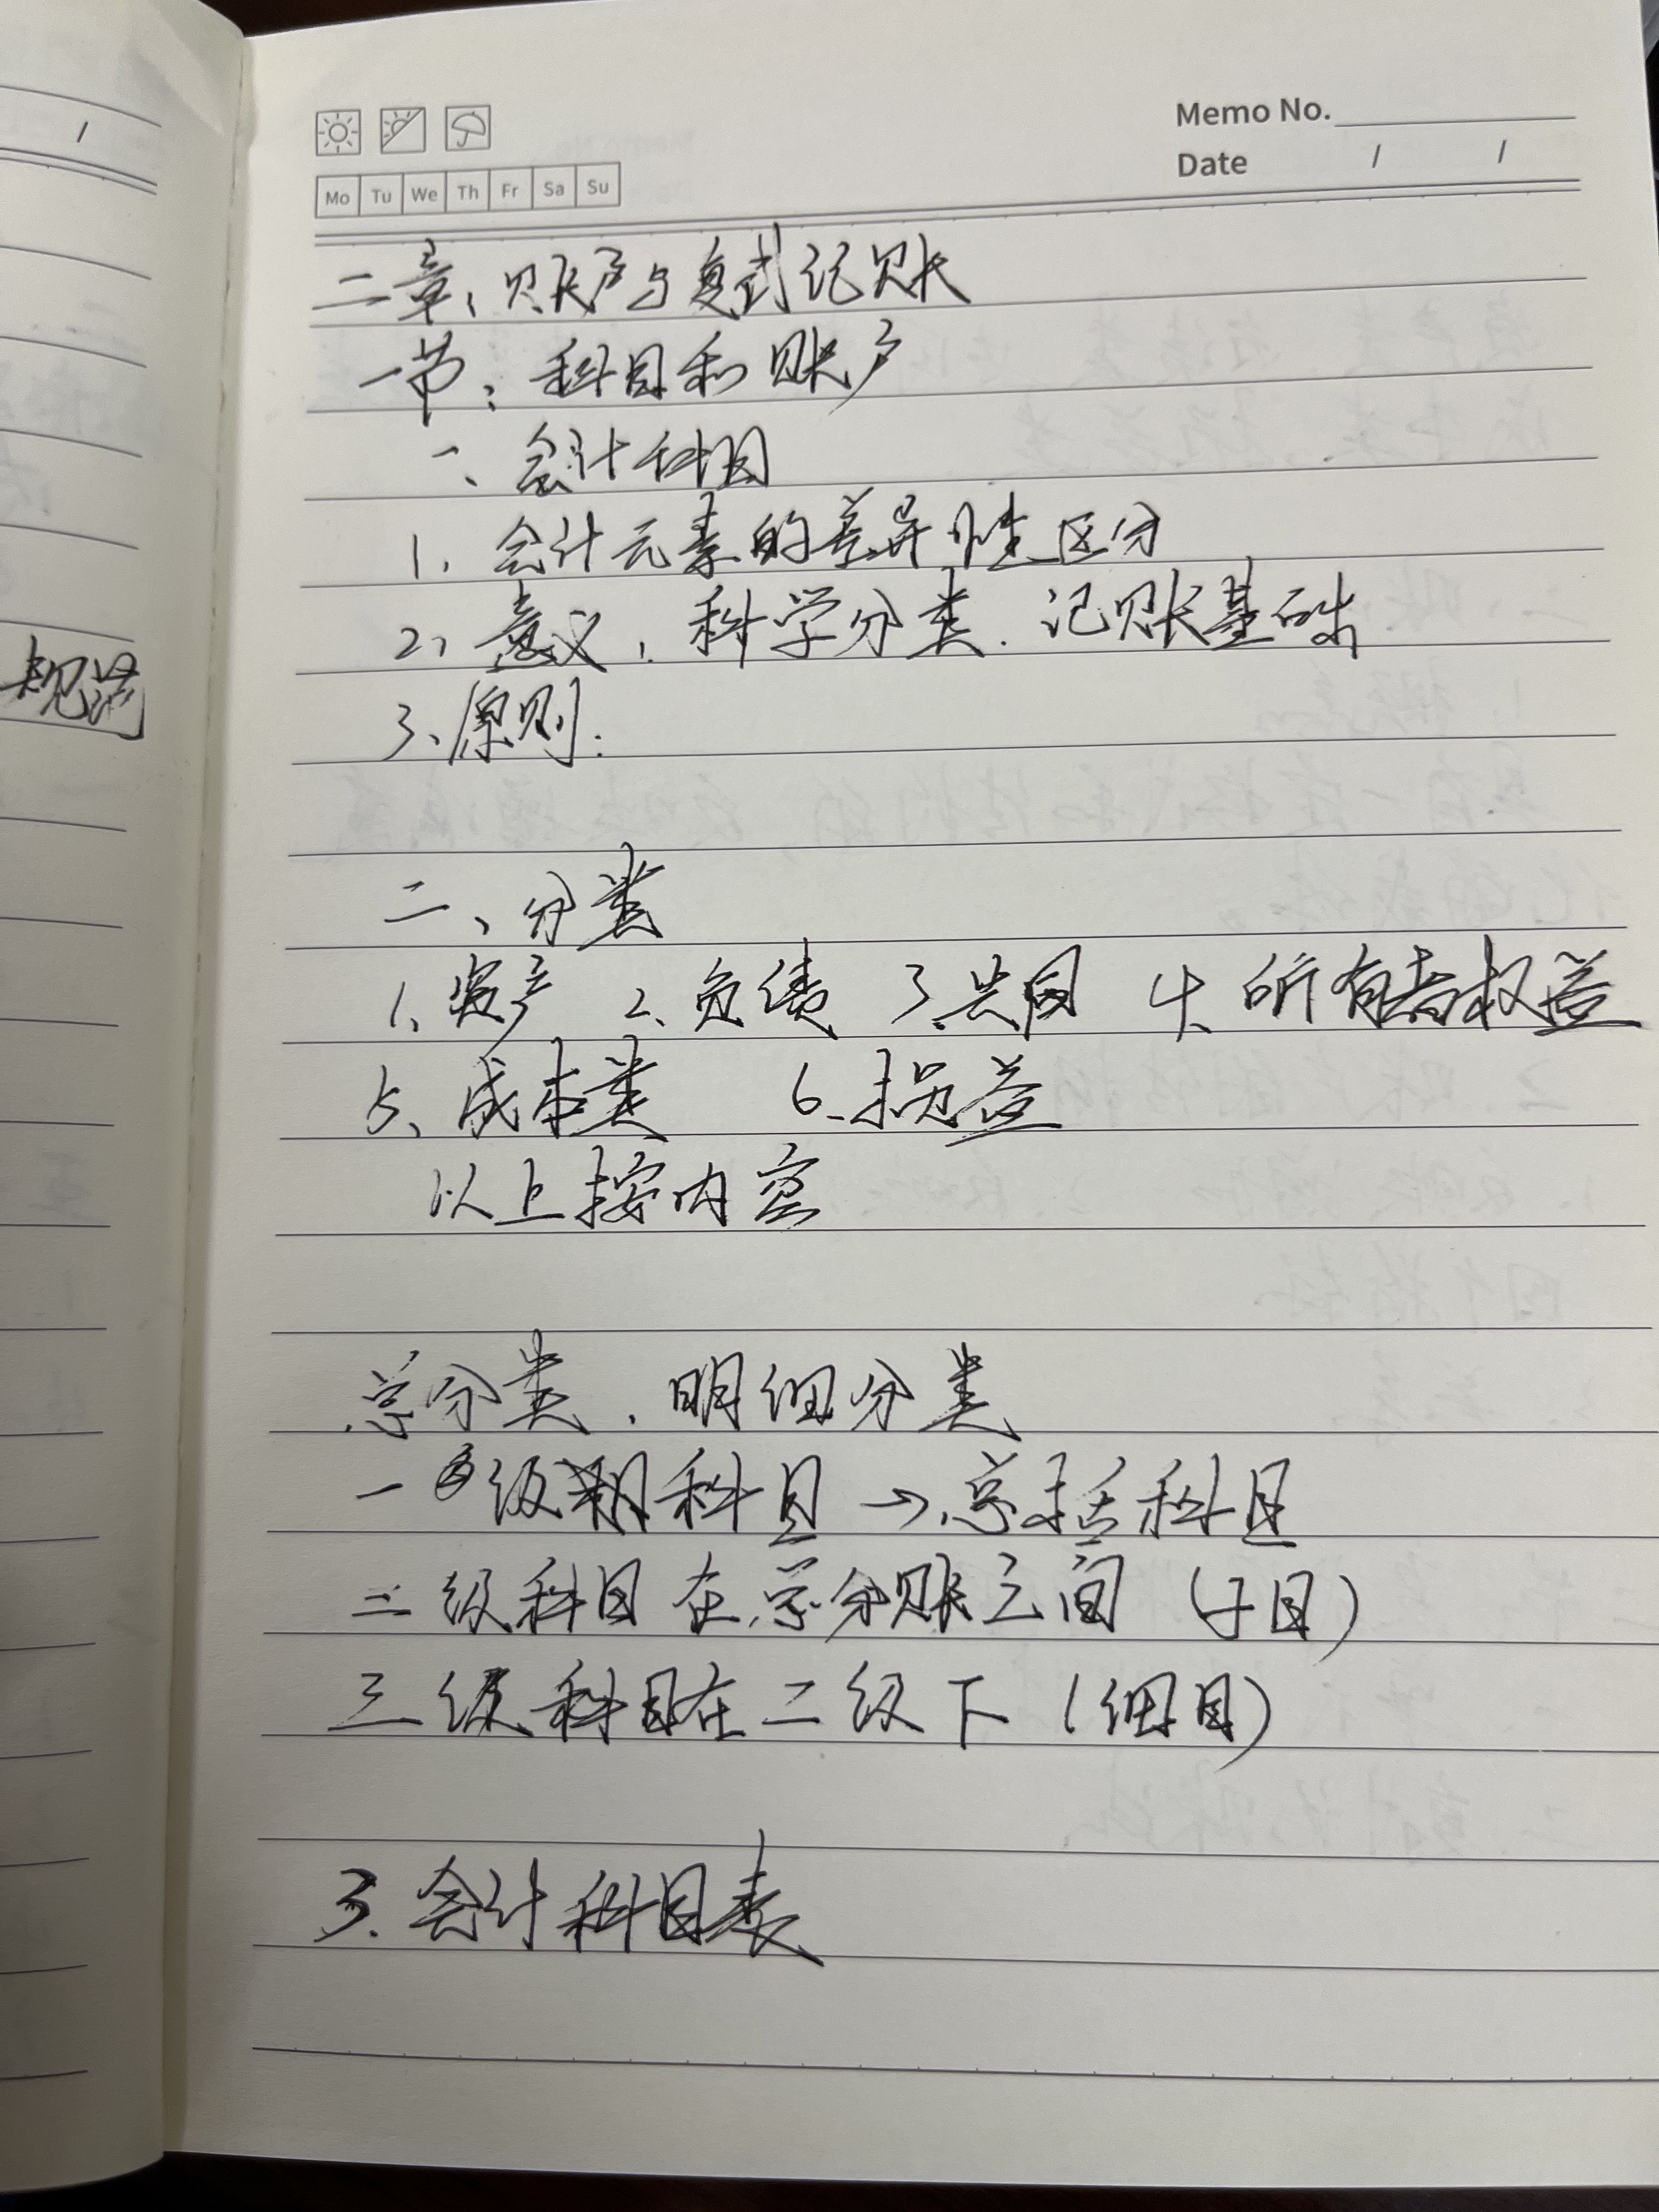 Memo No.
Date / /
Mo Tu We Th Fr Sa Su
二章、账户与复式记账
一节：科目和账户
一、会计科目
1、会计元素的差异性区分
2、意义：科学分类、记账基础
3、原则：
二、分类
1、资产 2、负债 3、共同 4、所有者权益
5、成本类 6、损益
以上按内容
总分类、明细分类
一级 科目→总括科目
二级科目在总分账之间（子目）
三级科目在二级下（细目）
3、会计科目表
/
规范